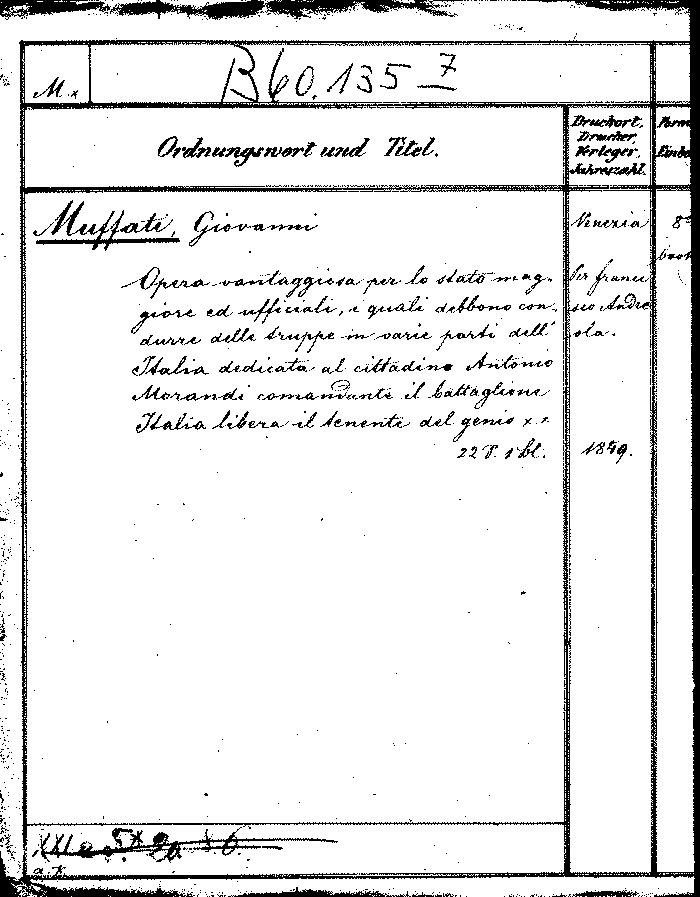 M.x
B60.135 7
Ordnungswort und Titel.
Druckort,
Drucker,
Verleger,
Jahreszahl.
Muffati, Giovanni
Venezia
8°
Opera vantaggiosa per lo stato mag-
giore ed ufficiali, i quali debbono con-
durre delle truppe in varie parti dell'
Italia dedicata al cittadino Antonio
Morandi comandante il battaglione
Italia libera il tenente del genio x x
22 S. 1 bl.
Per france
sco Andre
ola.
1849.